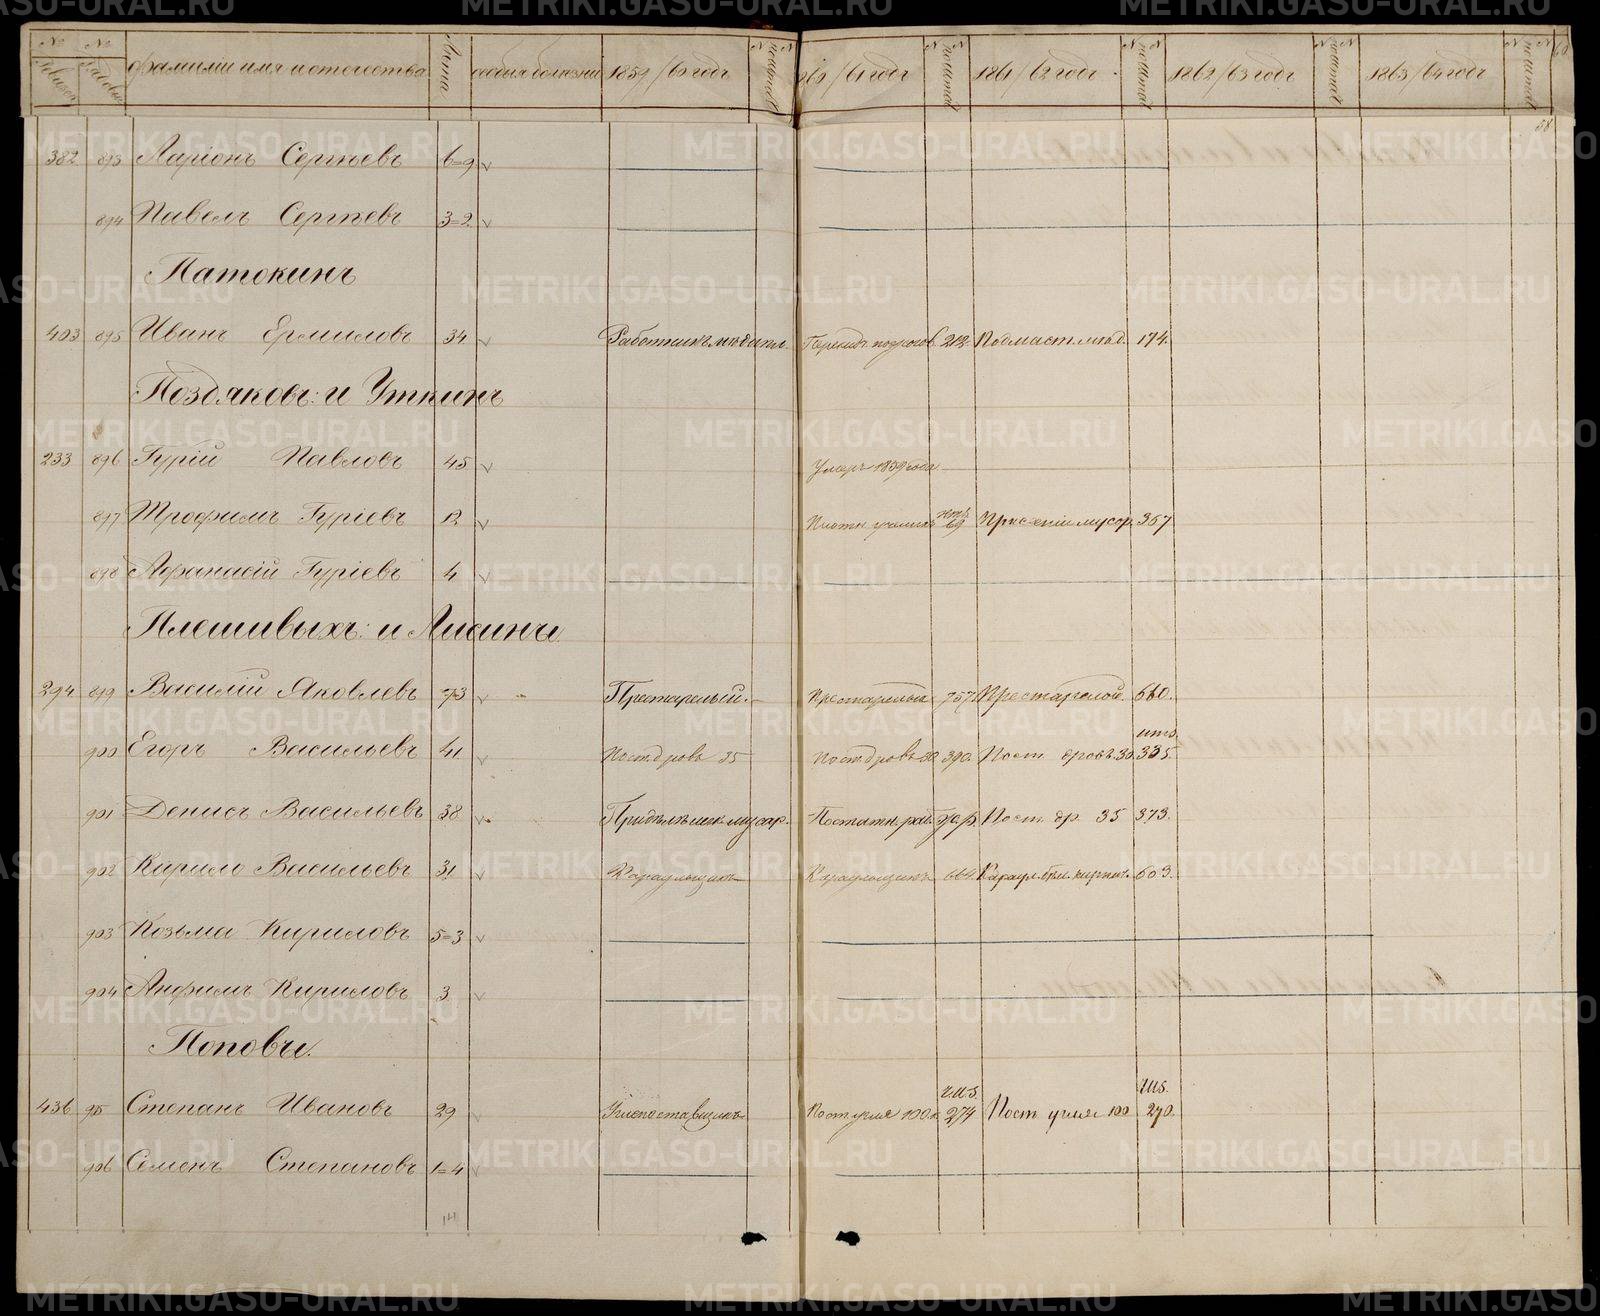 № Ревизск № Рядовы фамилии имя и отечества Лета особыя болезни 1859/60 годъ № 1860/61 годъ № 1861/62 годъ № 1862/63 годъ № 1863/64 годъ № 60
58
382 893 Ларіонъ Сергѣевъ 6=9
894 Павелъ Сергѣевъ 3=2
Патокинъ
403 895 Иванъ Ермиловъ 34 212 Подмаст. 174
Поздяковъ: и Уткинъ
233 896 Гурій Павловъ 45 Умеръ 1859 года
897 Трофимъ Гуріевъ 12 69 мусор. 357
898 Афанасій Гуріевъ 4
Плешивыхъ: и Лисинъ
294 899 Василій Яковлевъ 73 Престарелый. Престарелый 757 Престарелой 660.
900 Егоръ Васильевъ 41 Пост. дровъ 35 Пост. дровъ 30 390. Пост. дровъ 30 335.
901 Денисъ Васильевъ 38 мусор. Пост. др. 35 373.
902 Кирило Васильевъ 31 Караульщикъ Караульщикъ 664 Караул. 603.
903 Козьма Кириловъ 5=3
904 Анфимъ Кириловъ 3
Поповы.
436 905 Степанъ Ивановъ 29 Углепоставщикъ Пост угля 100 к 274 Пост угля 100 270.
906 Семенъ Степановъ 1=4
METRIKI.GASO-URAL.RU